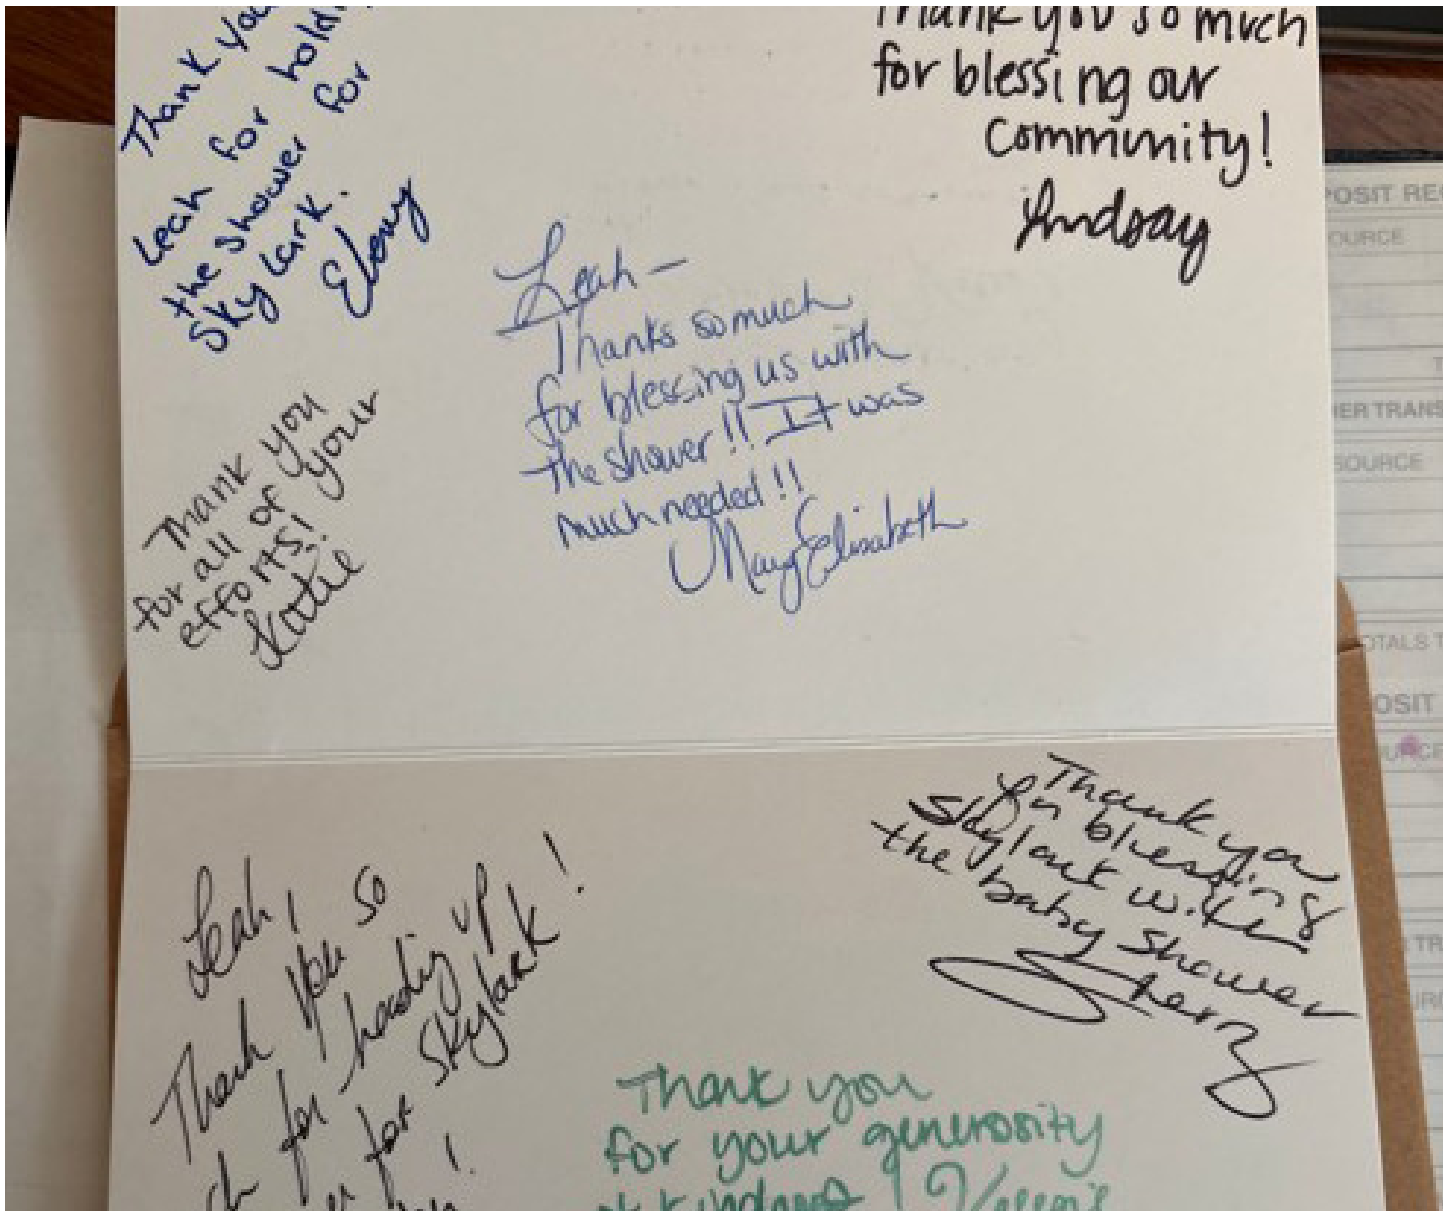 Thank you
Leah for holdi
the shower for
Sky Lark.
Ebony
Thank you so much
for blessing our
Community!
Lindsay
Leah —
Thanks so much
for blessing us with
the shower!! It was
much needed!!
Mary Elisabeth
Thank you
for all of your
efforts!
Katie
Thank you
for blessing
Skylark with
the baby shower
Sherry
Leah,
Thank you so
for heading up
for Skylark!
Thank you
for your generosity
POSIT RE
OURCE
T
ER TRANS
SOURCE
OTALS T
OSIT
URCE
TR